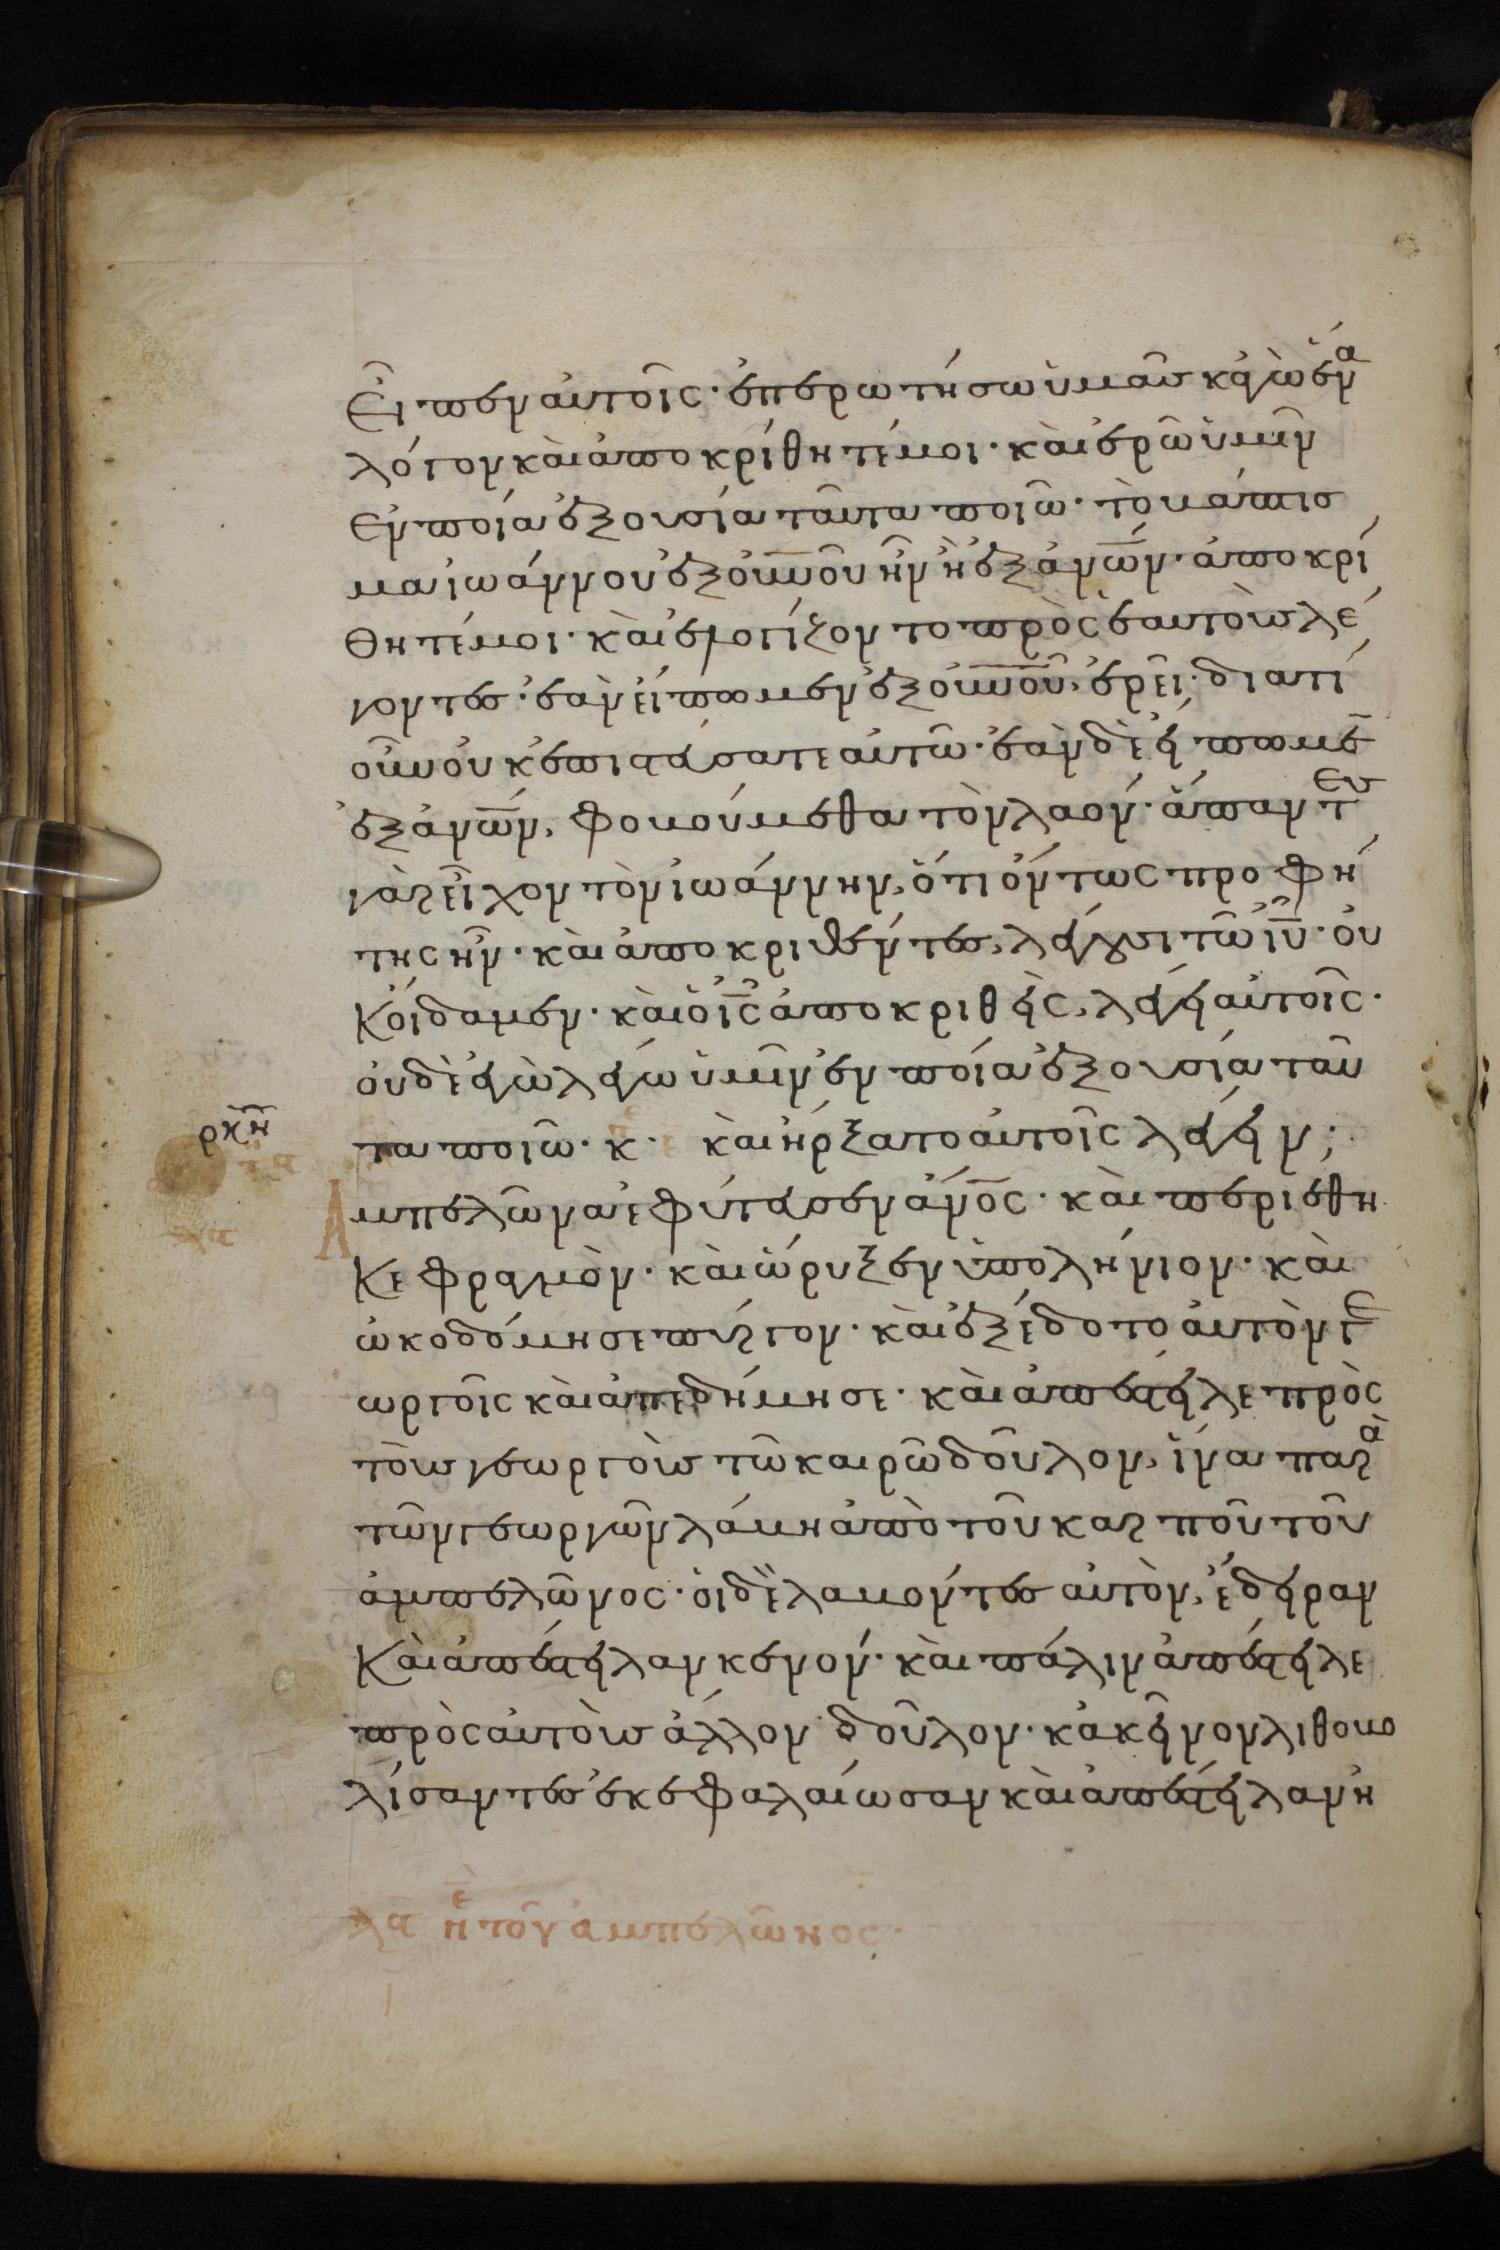 εἶπεν αὐτοῖς· ἐπερωτήσω ὑμᾶς κἀγὼ ἕνα
λόγον καὶ ἀποκρίθητέ μοι· καὶ ἐρῶ ὑμῖν
ἐν ποία ἐξουσία ταῦτα ποιῶ· τὸ βάπτισ
μα ἰωάννου ἐξ οὐνοῦ ἦν ἢ ἐξ ἀνων· ἀποκρί
θητέ μοι· καὶ ἐλογίζοντο πρὸς ἑαυτοὺς λέ
γοντες· ἐὰν εἴπωμεν ἐξ οὐνοῦ, ἐρεῖ· διατί
οὖν οὐκ ἐπιστεύσατε αὐτῶ· ἐὰν δὲ εἴπωμε
ἐξ ἀνων, φοβούμεθα τὸν λαόν· ἅπαντες
γὰρ εἶχον τὸν ἰωάννην, ὅτι ὄντως προφή
της ἦν· καὶ ἀποκριθέντες, λέγουσι τῶ ἰυ· οὐ
κ οἴδαμεν· καὶ ὁ ις ἀποκριθεὶς, λέγει αὐτοῖς·
οὐδὲ ἐγὼ λέγω ὑμῖν ἐν ποία ἐξουσία ταῦ
ρκη
τα ποιῶ· κ· καὶ ἤρξατο αὐτοῖς λέγειν;
λα
Ἀμπελῶνα ἐφύτευσεν ἄνος· καὶ περιέθη
κε φραγμὸν· καὶ ὤρυξεν ὑπολήνιον· καὶ
ὠκοδόμησε πύργον· καὶ ἐξέδοτο αὐτὸν γε
ωργοῖς καὶ ἀπεδήμησε· καὶ ἀπέστειλε πρὸς
τοὺς γεωργοὺς τῶ καιρῶ δοῦλον, ἵνα παρὰ
τῶν γεωργῶν λάβη ἀπὸ τοῦ καρποῦ τοῦ
ἀμπελῶνος· οἱ δὲ λαβόντες αὐτὸν, ἔδειραν
καὶ ἀπέστειλαν κενόν· καὶ πάλιν ἀπέστειλε
πρὸς αὐτοὺς ἄλλον δοῦλον· κἀκεῖνον λιθοβο
λίσαντες ἐκεφαλαίωσαν καὶ ἀπέστειλαν ἠ
λα πε τοῦ ἀμπελῶνος·